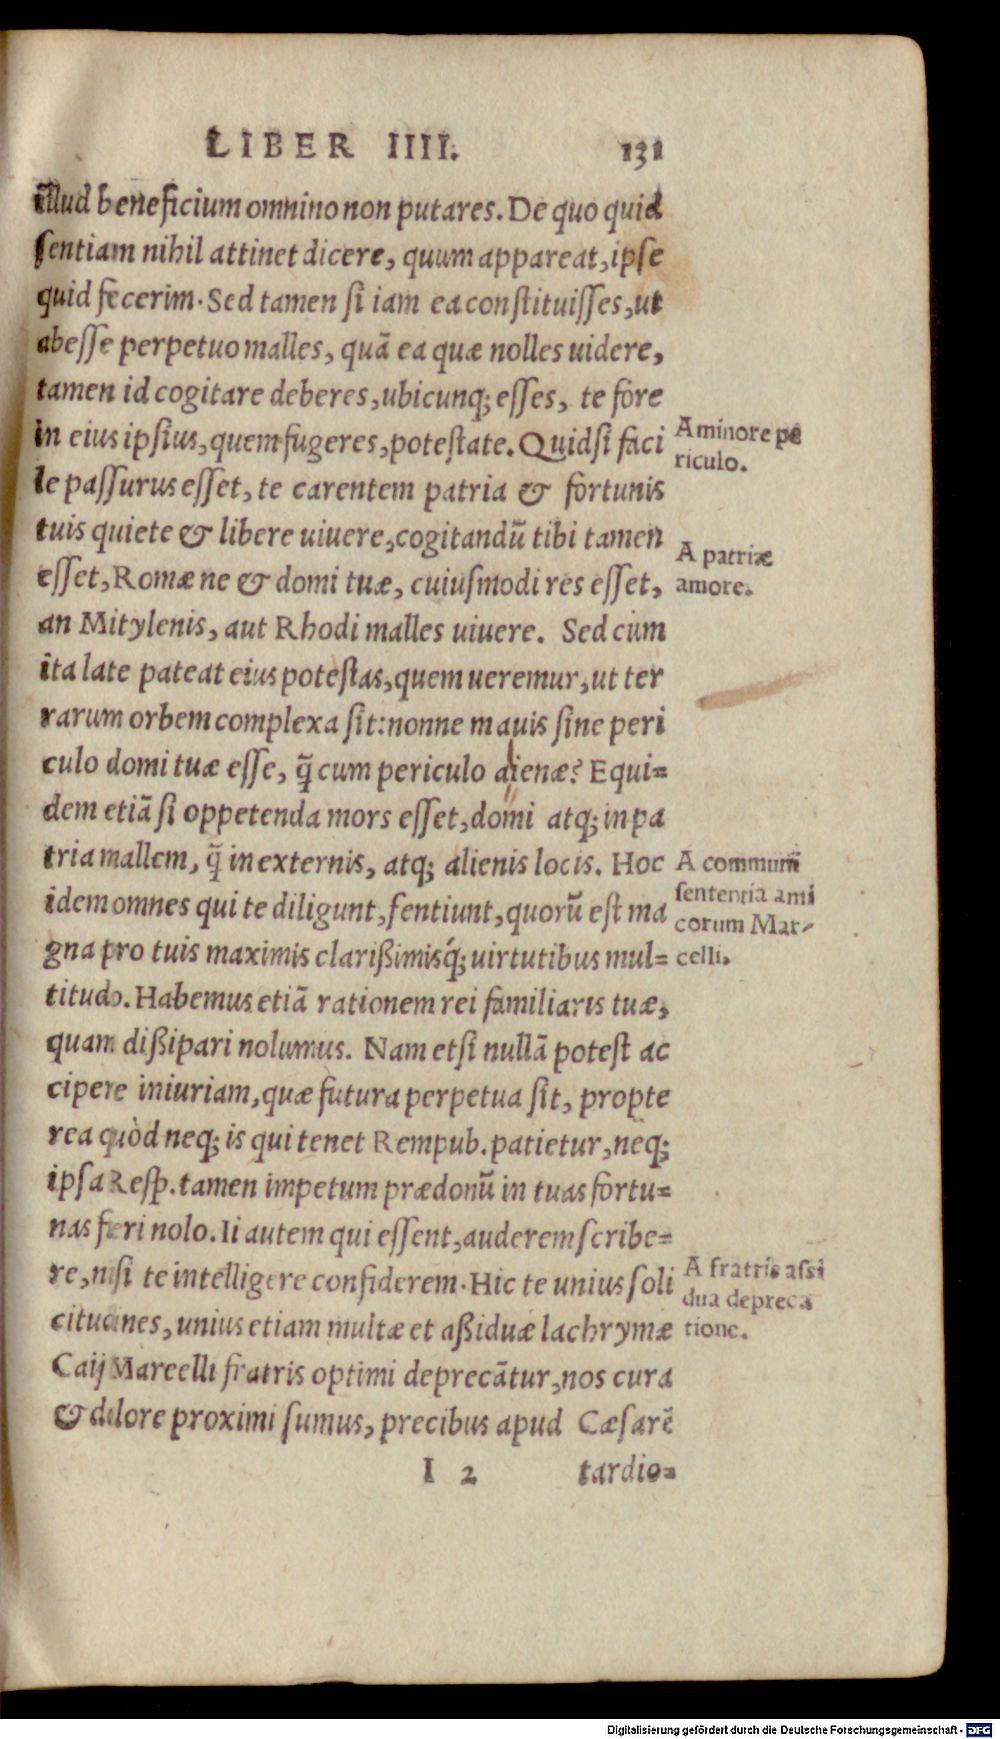 LIBER IIII. 131
illud beneficium omnino non putares. De quo quid
ſentiam nihil attinet dicere, quum appareat, ipſe
quid fecerim. Sed tamen ſi iam ea conſtituiſſes, ut
abeſſe perpetuo malles, quã ea quæ nolles uidere,
tamen id cogitare deberes, ubicunq; eſſes, te fore
in eius ipſius, quem fugeres, poteſtate. Quid ſi faci
A minore pe
riculo.
le paſſurus eſſet, te carentem patria & fortunis
tuis quiete & libere uiuere, cogitandũ tibi tamen
A patriæ
amore.
eſſet, Romæ ne & domi tuæ, cuiuſmodi res eſſet,
an Mitylenis, aut Rhodi malles uiuere. Sed cùm
ita late pateat eius poteſtas, quem ueremur, ut ter
rarum orbem complexa ſit: nonne mauis ſine peri
culo domi tuæ eſſe, q̃ cum periculo alienæ? Equi=
dem etiã ſi oppetenda mors eſſet, domi atq; in pa
tria mallem, q̃ in externis, atq; alienis locis. Hoc
A communi
ſententia ami
corum Mar-
celli.
idem omnes qui te diligunt, ſentiunt, quorũ eſt ma
gna pro tuis maximis clarißimisq́; uirtutibus mul=
titudo. Habemus etiã rationem rei familiaris tuæ,
quam dißipari nolumus. Nam etſi nullã poteſt ac
cipere iniuriam, quæ futura perpetua ſit, propte
rea quòd neq; is qui tenet Rempub. patietur, neq;
ipſa Reſp. tamen impetum prædonũ in tuas fortu=
nas fieri nolo. Ii autem qui eſſent, auderem ſcribe=
re, niſi te intelligere confiderem. Hic te unius ſoli
A fratris aſſi
dua depreca
tione.
citudines, unius etiam multæ et aßiduæ lachrymæ
Caij Marcelli fratris optimi deprecãtur, nos cura
& dolore proximi ſumus, precibus apud Cæſarẽ
I 2 tardio=
Digitalisierung gefördert durch die Deutsche Forschungsgemeinschaft - DFG